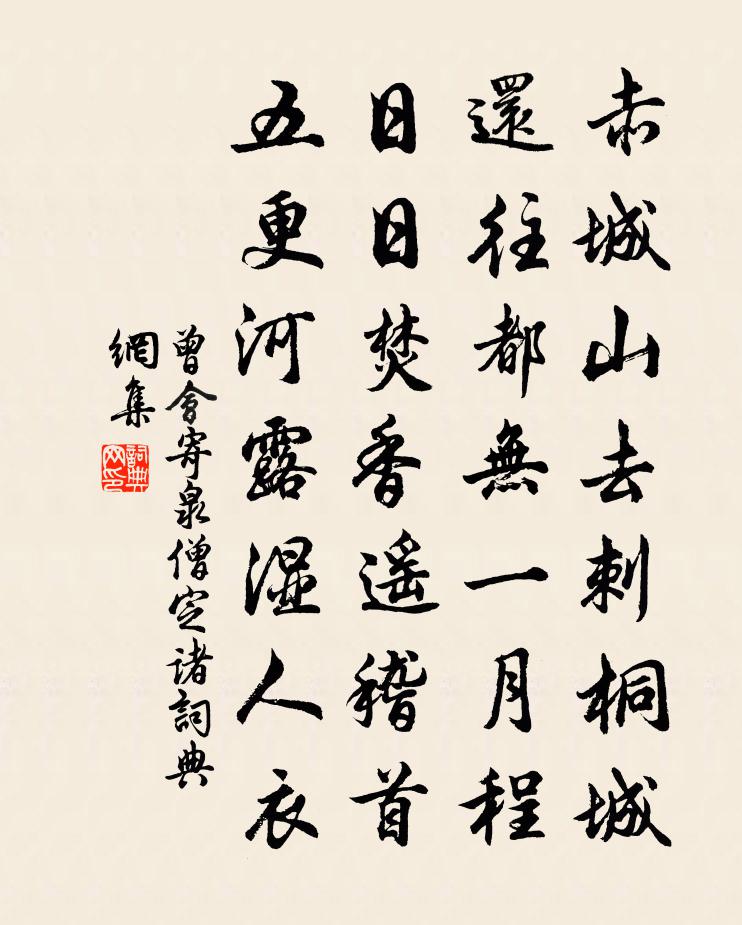 赤城山去刺桐城
還往都無一月程
日日焚香遥稽首
五更河露湿人衣
曾會寄泉僧定諸詞典
網集
詞典
网印